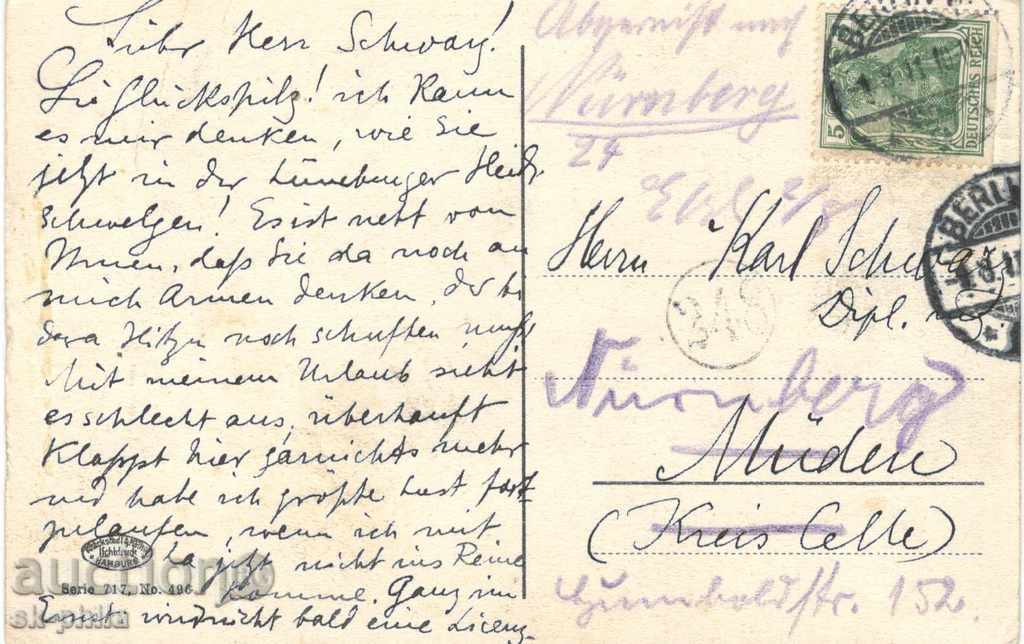 Lieber Herr Schwarz!
Sie Glückspilz! ich kann
es mir denken, wie Sie
jetzt in der Lüneburger Heide
schwelgen! Es ist nett von
Ihnen, daß Sie da noch an
mich Armen denken, der bei
dera Hitze noch schuften muß
Mit meinem Urlaub sieht
es schlecht aus, überhaupt
klappt hier garnichts mehr
und habe ich größte Lust fort
zulaufen, wenn ich mit
La jetzt nicht ins Reine
komme. Ganz im
Ernst, vielleicht bald eine Lizenz
Knackstedt & Näther
Lichtdruck
HAMBURG
Serie 717, No. 496
Abgereist nach
Nürnberg
24
BERLIN
1.8.11.10
5
DEUTSCHES REICH
Herrn Karl Schwarz
BERLIN
1.8.11
Dipl. ing
348
Nürnberg
Müden
(Kreis Celle)
Humboldstr. 152
auction
sk-phila